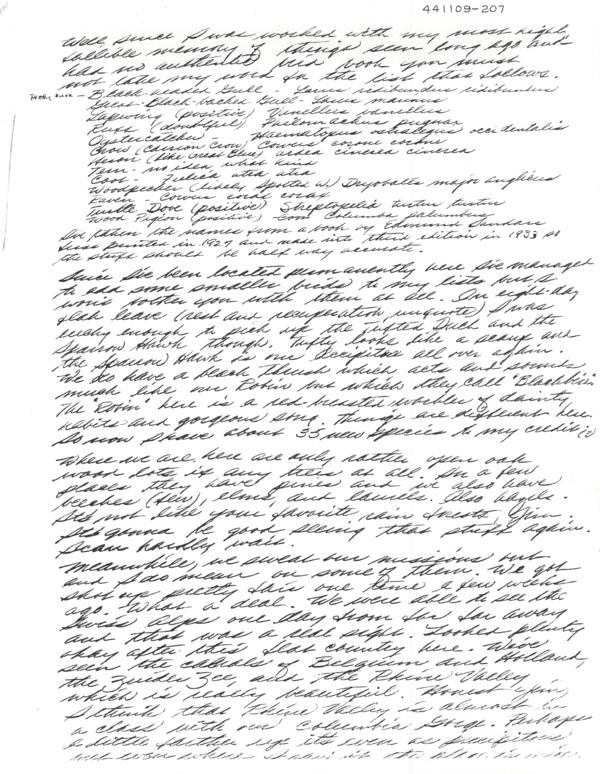 441109-207
Well, since I was worked with my most highly
fallible memory of things seen long ago and
had no authentic bird book you must
not take my word in the list that follows.
Pretty sure – Black-headed Gull – Larus ridibundus ridibundus
Great Black-backed Gull – Larus marinus
Lapwing (positive) Vanellus vanellus
Ruff (doubtful) Philomachus pugnax
Oystercatcher Haematopus ostralegus occidentalis
Crow (Carrion Crow) Corvus corone corone
Heron (like Great Blue) Ardea cinerea cinerea
Tern – no idea what kind
Coot – Fulica atra atra
Woodpecker (likely Spotted W.) Dryobates major anglicus
Raven – Corvus corax corax
Turtle Dove (positive) Streptopelia turtur turtur
Wood Pigeon (positive) Columba palumbus
I've taken the names from a book by Edmund Sandars
first printed in 1927 and made into third edition in 1933 so
the stuff should be half way accurate.
Since I've been located permanently here I've managed
to add some smaller birds to my lists but I
won't bother you with them at all. On eight-day
flak leave (rest and recuperation, unquote) I was
lucky enough to pick up the Tufted Duck and the
Sparrow Hawk though. Tufty looks like a scaup and
the Sparrow Hawk is our accipiter all over again.
We do have a black thrush which acts and sounds
much like our Robin but which they call "Blackbird".
The "Robin" here is a red-breasted warbler of dainty
habits and gorgeous song. Things are different here.
So now I have about 35 new species to my credit
Where we are here are only rather open oak
wood lots if any trees at all. In a few
places they have pines and we also have
beeches (few), elms, and laurels. Also hazels.
It's not like your favorite rain forests, Jim.
It's gonna be good seeing that stuff again.
I can hardly wait.
Meanwhile, we sweat our missions out
and I do mean on some of them. We got
shot up pretty fair one time a few weeks
ago. What a deal. We were able to see the
Swiss Alps one day from far far away
and that was a real sight. Looked plenty
okay after this flat country here. We've
seen the canals of Belgium and Holland,
the Zuider Zee, and the Rhine Valley
which is really beautiful. Honest Jim,
I think that Rhine Valley is almost in
a class with our Columbia Gorge. Perhaps
a little farther up it's even as precipitous